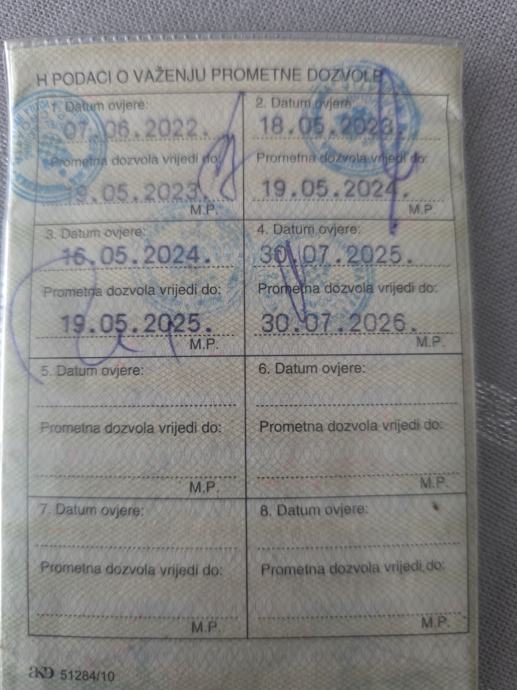 H PODACI O VAŽENJU PROMETNE DOZVOLE
1. Datum ovjere:
07.06.2022.
Prometna dozvola vrijedi do:
19.05.2023.
M.P.
2. Datum ovjere:
18.05.2023.
Prometna dozvola vrijedi do:
19.05.2024.
M.P.
3. Datum ovjere:
16.05.2024.
Prometna dozvola vrijedi do:
19.05.2025.
M.P.
4. Datum ovjere:
30.07.2025.
Prometna dozvola vrijedi do:
30.07.2026.
M.P.
5. Datum ovjere:
Prometna dozvola vrijedi do:
M.P.
6. Datum ovjere:
Prometna dozvola vrijedi do:
M.P.
7. Datum ovjere:
Prometna dozvola vrijedi do:
M.P.
8. Datum ovjere:
Prometna dozvola vrijedi do:
M.P.
AKD 51284/10